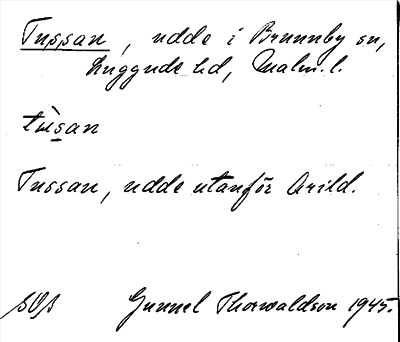 Tussan, udde i Brunnby sn,
Luggude hd, Malm. l.
tùsan
Tussan, udde utanför Arild.
Gunnel Thorwaldson 1945.